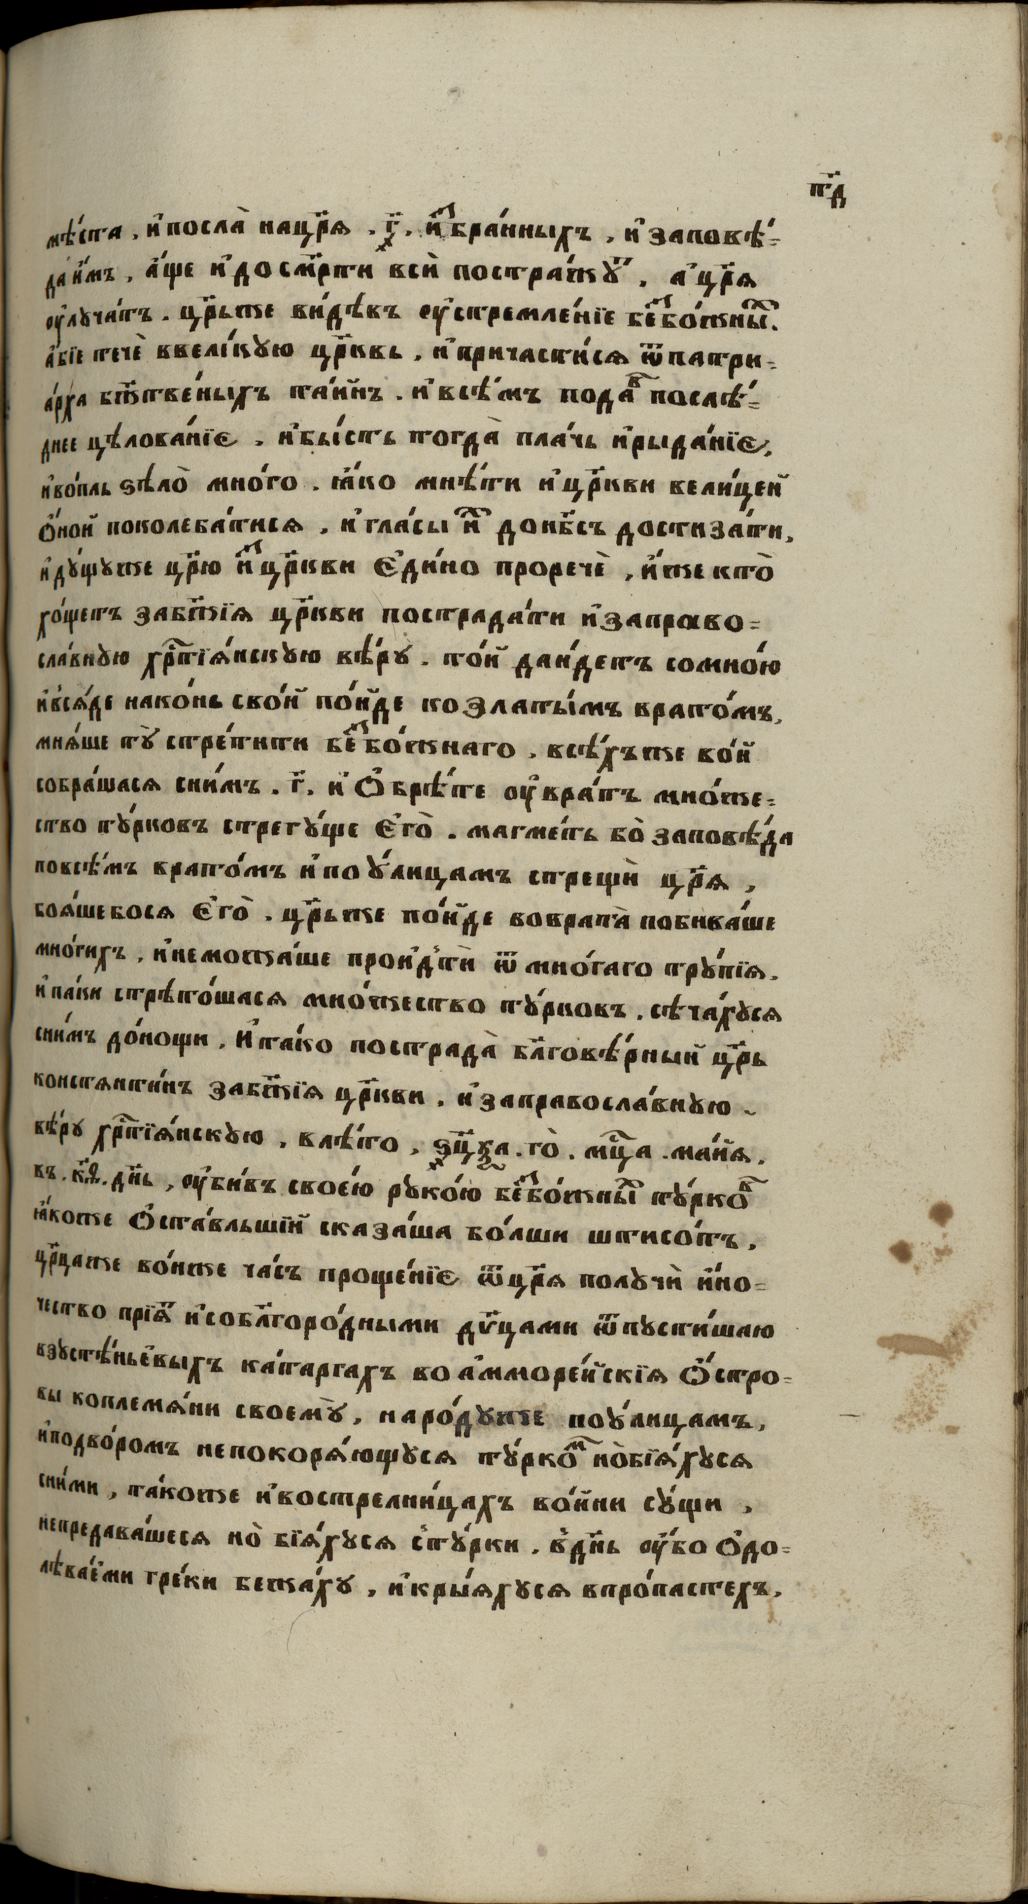 п҃д
мѣ́ста , и҆посла̀ нацр҃ѧ . ҂г҃ , и҆збра́нныхъ , и҆ заповѣ́=
да и҆́мъ , а҆́ще и҆ досмр҃ти всѝ постра́жꙋ . а҆ цр҃ѧ
ᲂу҆лꙋча́тъ . цр҃ьже ви́дѣвъ ᲂу҆стремле́нїе безбо́жныⷯ .
а҆́бїе течѐ ввели́кꙋю цр҃квь , и҆причасти́сѧ ѿпатри=
а́рха бжⷭ҇твеныхъ та́инъ . и҆всѣ́мъ пода́въ послѣ́=
днее цѣлова́нїе . и҆бы́сть тогда̀ пла́чь и҆рыда́нїе ,
и҆во́пль ѕѣлѡ̀ мно́го . ꙗ҆́ко мнѣ́ти и҆ цр҃кви вели́цей
ѻ҆́ной поколеба́тисѧ , и҆ гла́сы и҆́хъ донб҃съ достиза́ти ,
и҆дꙋ́щꙋже цр҃ю и҆зцр҃кви є҆ди́но проречѐ , и҆́же кто̀
хо́щетъ забж҃їѧ цр҃кви пострада́ти и҆заправо=
сла́внꙋю хрⷭ҇тїѧ́нскꙋю вѣ́рꙋ . то́й даи́детъ сомно́ю
и҆всѧ́де нако́нь сво́й по́йде козлаты́мъ врато́мъ ,
мнѧ́ше тꙋ̀ стре́тити безбо́жнаго . всѣ́хъже во́й
собра́шасѧ сни́мъ . г҃ . и҆ ѻ҆брѣ́те ᲂу҆вра́тъ мно́же=
ство тꙋ́рковъ стрегꙋ́ще є҆го̀ . магме́ть бо̀ заповѣ́да
повсѣ́мъ врато́мъ и҆поꙋ́лицамъ стрещѝ цр҃ѧ ,
боѧ́шебосѧ є҆го̀ . цр҃ьже по́йде вовратà побива́ше
мно́гихъ , и҆неможа́ше проидтѝ ѿ мно́гаго трꙋ́пїѧ .
и҆па́ки стрѣто́шасѧ мно́жество тꙋ́рковъ . сѣча́хꙋсѧ
сни́мъ до́нощи . и҆та́ко пострада̀ блг҃овѣ́рный цр҃ь
констѧнти́нъ забж҃їѧ цр҃кви . и҆ заправосла́внꙋю
вѣ́рꙋ хрⷭ҇тїѧ́нскꙋю . влѣ́то , ҂ѕц҃ѯа . го̀ . мц҃а . ма́йѧ .
въ . к҃ѳ . дн҃ь , ᲂу҆би́въ свое́ю рꙋко́ю безбо́жныⷯ тꙋ́рковъ
ꙗ҆́коже ѻ҆ста́вльшїи сказа́ша бо́лши шти́со́тъ .
цр҃цаже во́иже ча́съ проще́нїе ѿцр҃ѧ полꙋчѝ и҆́но=
чество прїѧ́тъ и҆соблг҃оро́дными дв҃цами ѿпꙋсти́шаю
взꙋстѣ́ньевыхъ ка́таргахъ во а҆мморе́йскїѧ ѻ҆́стро=
вы коплемѧ́ни своемꙋ̀ , наро́дꙋже поꙋ́лицамъ ,
и҆подво́ромъ непокорѧ́ющꙋсѧ тꙋ́ркомъ но̀бїѧ́хꙋсѧ
сни́ми , та́коже и҆востре́лницахъ во́йни сꙋ́щи ,
непредава́шесѧ но̀ бїѧ́хꙋсѧ стꙋ́рки . вдн҃ь ᲂу҆́бо ѻ҆до=
лѣва́еми гре́ки бежа́хꙋ , и҆кры́ѧхꙋсѧ впро́пастехъ .